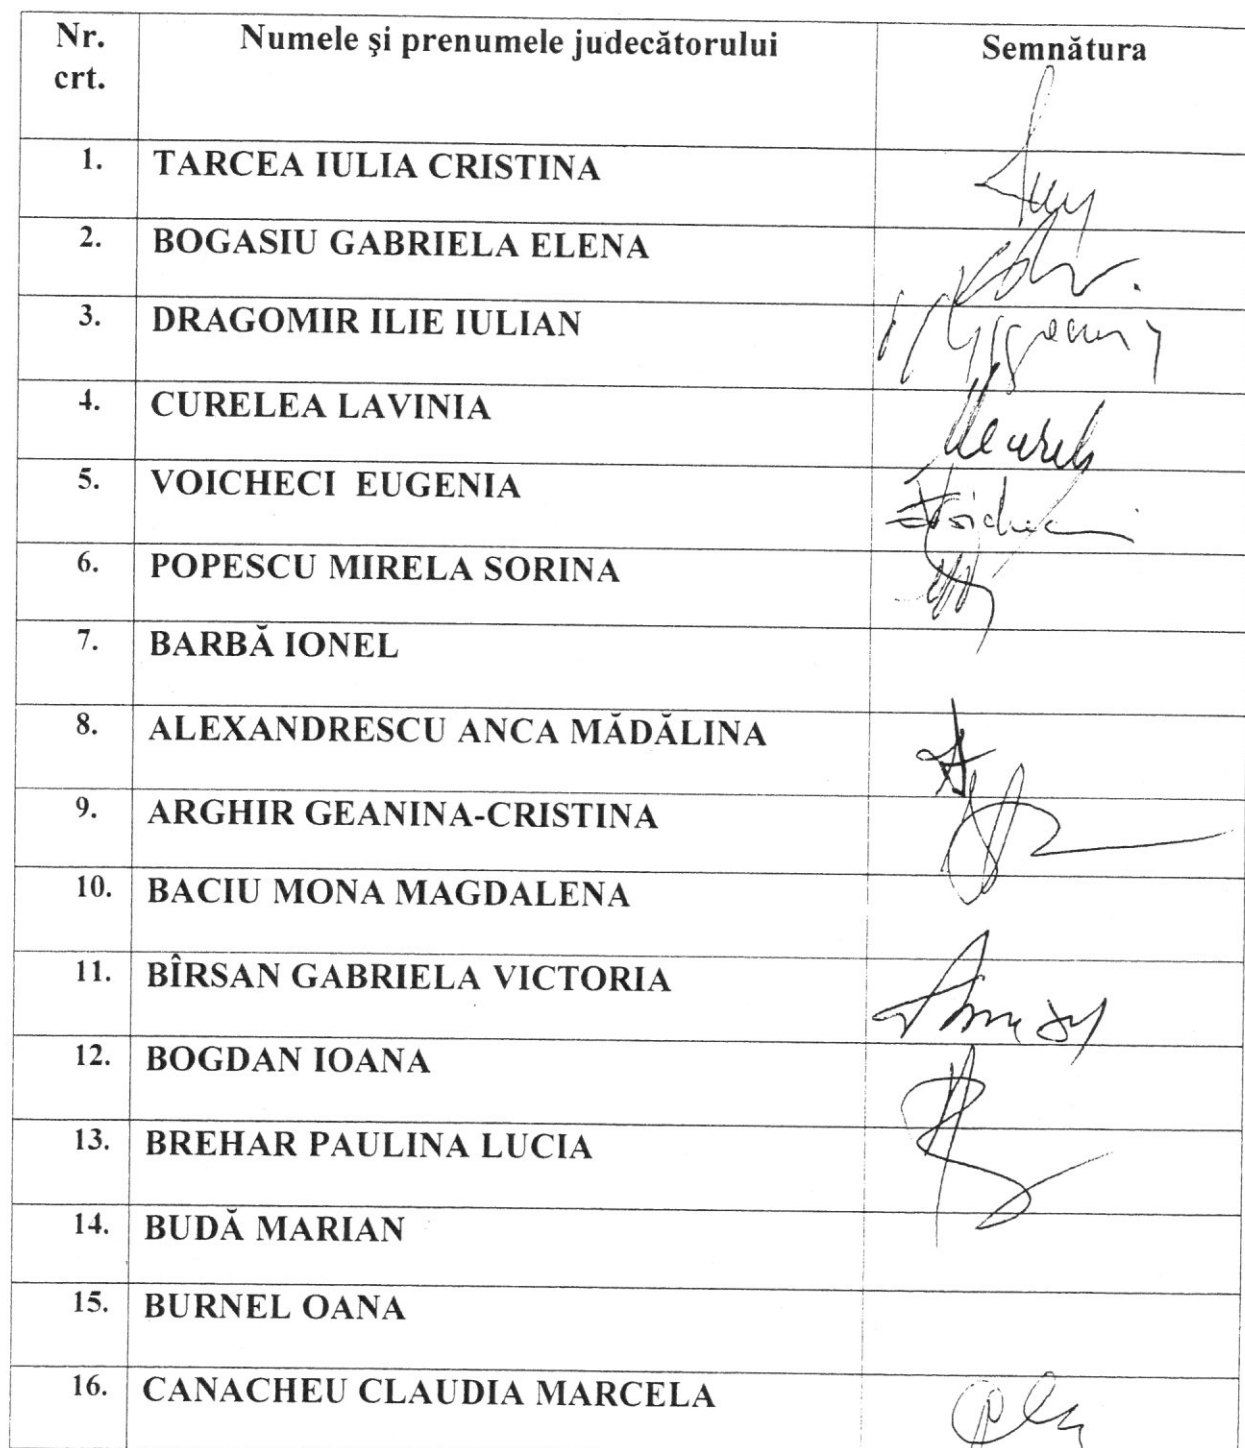 Nr. crt. Numele şi prenumele judecătorului Semnătura
1. TARCEA IULIA CRISTINA
2. BOGASIU GABRIELA ELENA
3. DRAGOMIR ILIE IULIAN
4. CURELEA LAVINIA
5. VOICHECI EUGENIA
6. POPESCU MIRELA SORINA
7. BARBĂ IONEL
8. ALEXANDRESCU ANCA MĂDĂLINA
9. ARGHIR GEANINA-CRISTINA
10. BACIU MONA MAGDALENA
11. BÎRSAN GABRIELA VICTORIA
12. BOGDAN IOANA
13. BREHAR PAULINA LUCIA
14. BUDĂ MARIAN
15. BURNEL OANA
16. CANACHEU CLAUDIA MARCELA